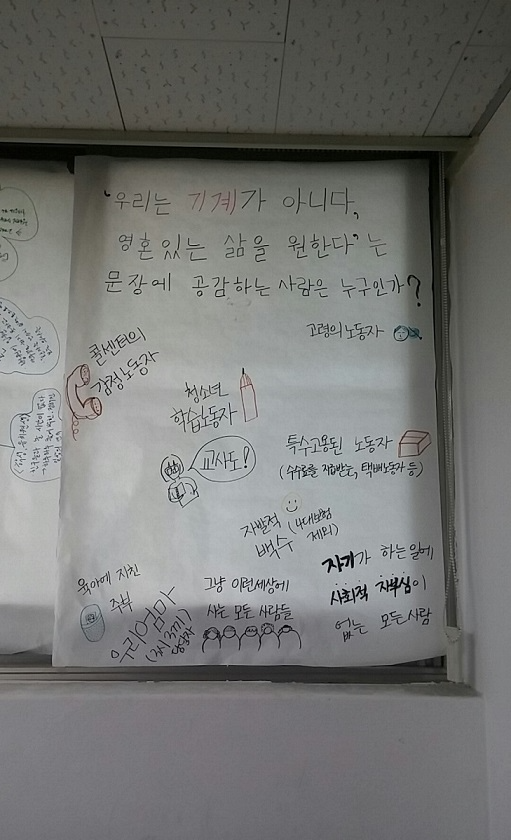 '우리는 기계가 아니다,
영혼 있는 삶을 원한다'는
문장에 공감하는 사람은 누구인가?
고령의 노동자
콜센터의
감정노동자
청소년
학습노동자
교사도!
특수고용된 노동자
(수수료를 지급받는, 택배노동자 등)
자발적
백수
(4대보험
제외)
육아에 지친
주부
우리엄마
담당자)
그냥 이런세상에
사는 모든 사람들
자기가 하는일에
사회적 자부심이
없는 모든 사람